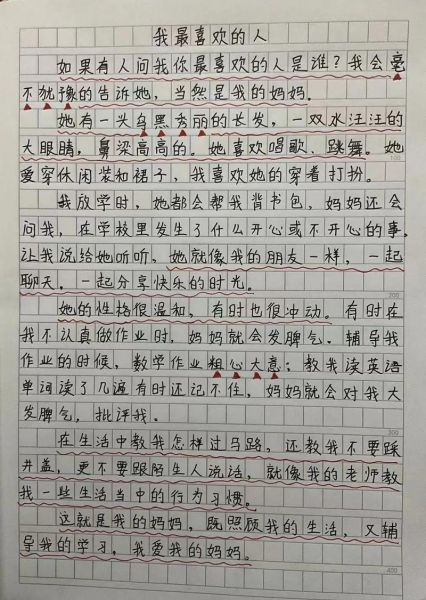 我最喜欢的人
如果有人问我你最喜欢的人是谁?我会毫
不犹豫的告诉她,当然是我的妈妈。
她有一头乌黑秀丽的长发,一双水汪汪的
大眼睛,鼻梁高高的。她喜欢唱歌、跳舞。她
爱穿休闲装和裙子,我喜欢她的穿着打扮。
100
我放学时,她都会帮我背书包,妈妈还会
问我,在学校里发生了什么开心或不开心的事,
让我说给她听听,她就像我的朋友一样,一起
聊天,一起分享快乐的时光。
200
她的性格很温和,有时也很冲动。有时在
我不认真做作业时,妈妈就会发脾气。辅导我
作业的时候,数学作业粗心大意;教我读英语
单词读了几遍有时还记不住,妈妈就会对我大
发脾气,批评我。
300
在生活中教我怎样过马路,还教我不要踩
井盖,更不要跟陌生人说话,就像我的老师教
我一些生活当中的行为习惯。
这就是我的妈妈,既照顾我的生活,又辅
导我的学习,我爱我的妈妈。
400